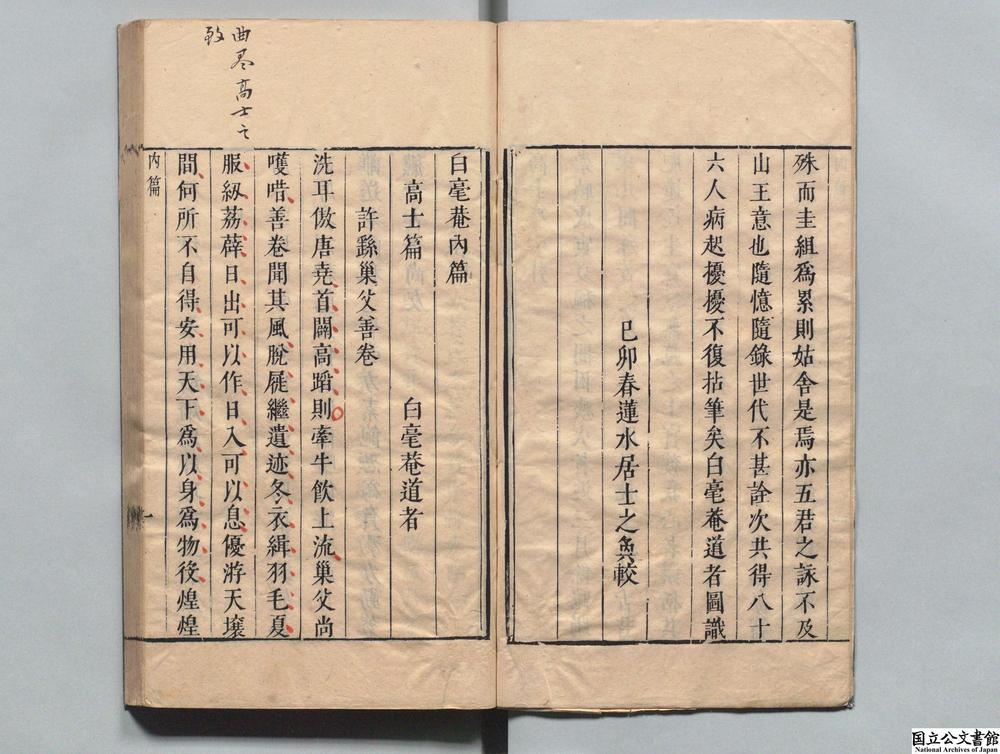 殊而圭組爲累則姑舍是焉亦五君之詠不及
山王意也隨憶隨錄世代不甚詮次共得八十
六人病起擾擾不復拈筆矣白毫菴道者圖識
己卯春蓮水居士之奐較
白毫菴內篇
高士篇 白毫菴道者
許繇巢父善卷
洗耳傲唐堯首闢高蹈則牽牛飲上流巢父尚
嘆唶善卷聞其風脫屣繼遺迹冬衣緝羽毛夏
服紉荔薜日出可以作日入可以息優游天壤
間何所不自得安用天下爲以身爲物役煌煌
內篇
一
曲尽高士之
致
国立公文書館
National Archives of Japan